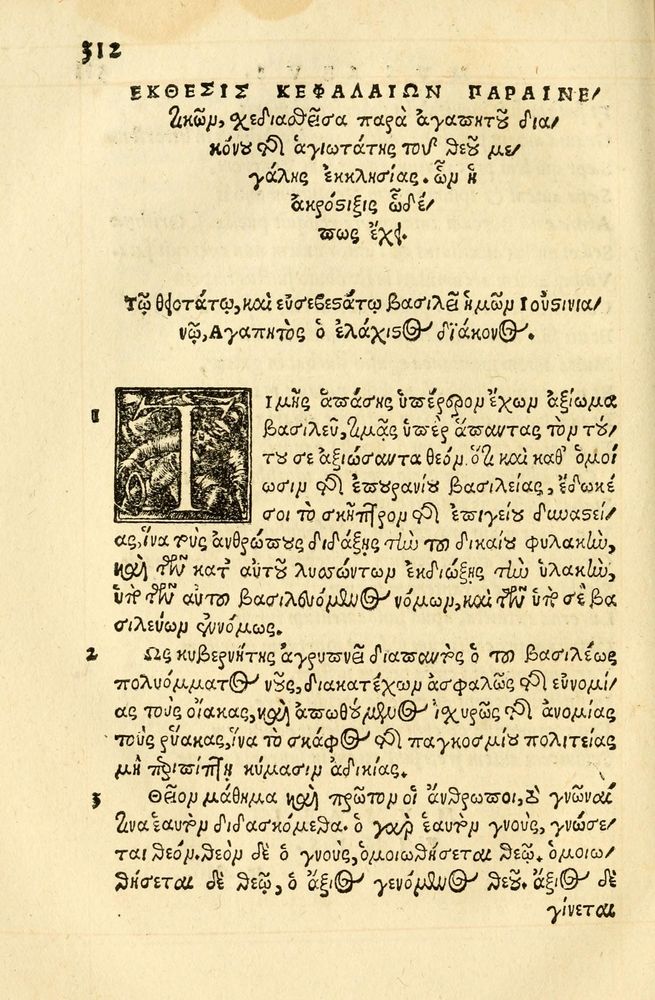 312
ΕΚΘΕΣΙΣ ΚΕΦΑΛΑΙΩΝ ΠΑΡΑΙΝΕ/
τικῶν, σχεδιασθεῖσα παρὰ ἀγαπητοῦ δια/
κόνου τῆς ἁγιωτάτης τοῦ θεοῦ με/
γάλης ἐκκλησίας. ὧν ἡ
ἀκρόστιξις ὧδέ/
πως ἔχει.
Τῷ θειοτάτῳ, καὶ εὐσεβεστάτῳ βασιλεῖ ἡμῶν Ιουστινια/
νῷ, Αγαπητὸς ὁ ἐλάχιστος διάκονος.
1 ΤΙμῆς ἁπάσης ὑπέρτερον ἔχων ἀξίωμα
βασιλεῦ, τιμᾷς ὑπὲρ ἅπαντας τὸν τού/
του σε ἀξιώσαντα θεόν. ὅτι καὶ καθ' ὁμοί
ωσιν τῆς ἐπουρανίου βασιλείας, ἔδωκέ
σοι τὸ σκῆπτρον τῆς ἐπιγείου δυναστεί/
ας, ἵνα τοὺς ἀνθρώπους διδάξῃς τὴν τοῦ δικαίου φυλακὴν,
καὶ τῶν κατ' αὐτοῦ λυσσώντων ἐκδιώξῃς τὴν ὑλακὴν,
ὑπὸ τῶν αὐτοῦ βασιλευόμενος νόμων, καὶ τῶν ὑπὸ σὲ βα
σιλεύων ἐννόμως.
2 Ως κυβερνήτης ἀγρυπνεῖ διαπαντὸς ὁ τοῦ βασιλέως
πολυόμματος νοῦς, διακατέχων ἀσφαλῶς τῆς εὐνομί/
ας τοὺς οἴακας, καὶ ἀπωθούμενος ἰσχυρῶς τῆς ἀνομίας
τοὺς ῥύακας, ἵνα τὸ σκάφος τῆς παγκοσμίου πολιτείας
μὴ περιπίπτῃ κύμασιν ἀδικίας.
3 Θεῖον μάθημα καὶ πρῶτον οἱ ἄνθρωποι, τὸ γνῶναί
τινα ἑαυτὸν διδασκόμεθα. ὁ γὰρ ἑαυτὸν γνοὺς, γνώσε/
ται θεόν. θεὸν δὲ ὁ γνοὺς, ὁμοιωθήσεται θεῷ. ὁμοιω/
θήσεται δὲ θεῷ, ὁ ἄξιος γενόμενος θεοῦ. ἄξιος δὲ
γίνεται